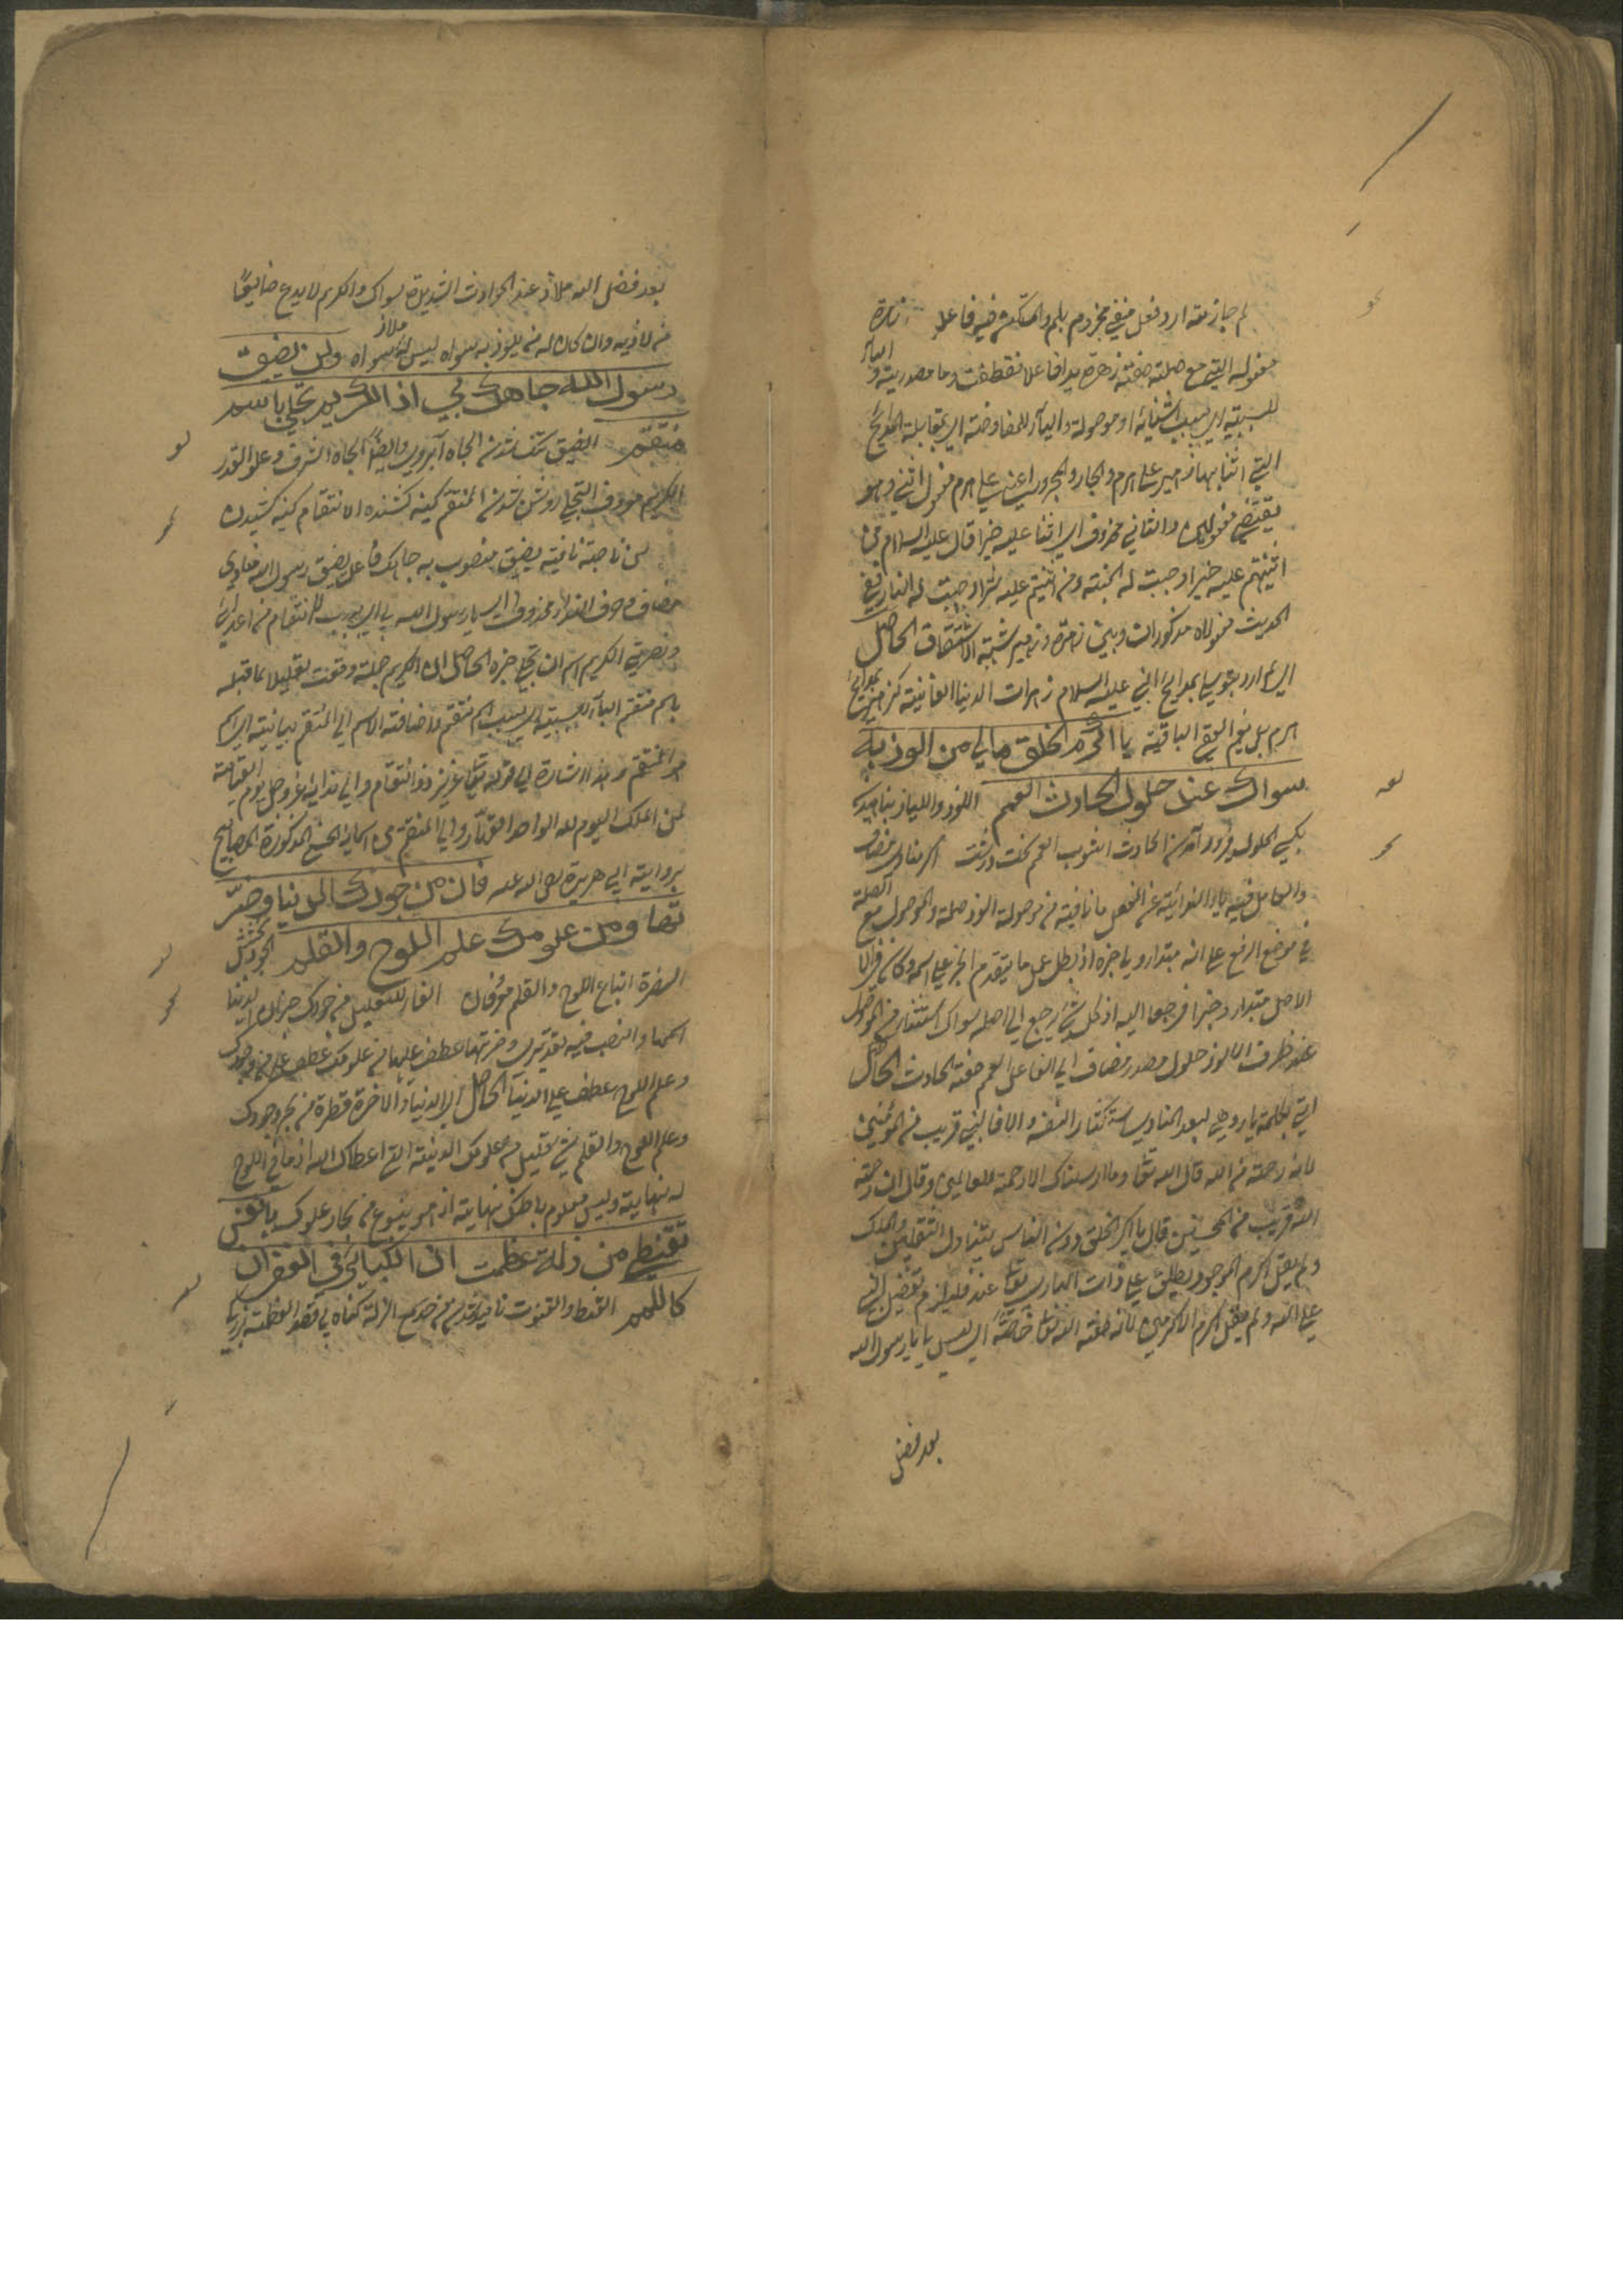 لم جازمة ارد فعل منفي مجزوم بلم والمستكن فيه فاعله زهرة
مفعوله التي مع صلته صفته زهرة يدا فاعل اقتطفت وما مصدرية و الباء
للسببية اي بسبب اثنائه او موصولة والباء للمعاوضة اي بمقابلة المدايح
التي اثنا بها زهير على هرم والجار والمجرور اعني على هرم مفعول اثني وهو
يقتضي مفعولين والثاني محذوف اي اثنا عليه خيرا قال عليه السلام من
اثنيتم عليه خيرا وجبت له الجنة ومن اثنيتم عليه شرا وجبت له النار ففي
الحديث مفعولاه مذكوران وبين زهرة وزهير شبه الاشتقاق الحاصل
اي لم ارد بتوسلي بمدايح النبي عليه السلام زهرات الدنيا الفانية كزهير بمدايح
هرم بل نعيم العقبى الباقية يا اكرم الخلق مالي من الوذ به
سواك عند حلول الحادث العمم اللوذ واللياذ پناهیدن
بكسي الحلول فرود آمدن الحادث النوب العمم سخت وزشت اكرم منادى مضاف
والعامل فيه ياء الندائية عن الفعل ما نافية من موصولة الوذ صلة والموصول مع الصلة
في موضع الرفع على انه مبتدا ولي خبره اذ بطل عمل ما بتقدم الخبر على اسمه وكانا في
الاصل مبتدا وخبرا فرجعا اليه اذ كل شيء يرجع الى اصله سواك استثناء من الموصول
عند ظرف لالوذ حلول مصدر مضاف الى الفاعل العمم صفة الحادث الحاصل
اتى بكلمة يا وهي لبعد المنادى استحقارا لنفسه والا فالنبي قريب من المؤمنين
لانه رحمة من الله قال الله تعا وما ارسلناك الا رحمة للعالمين وقال ان رحمة
الله قريب من المحسنين قال يا اكرم الخلق دون الناس ليتناول الثقلين والملك
ولم يقل اكرم الموجود يطلق على ذات الباري تعا عند فيلزم تفضيل النبي
على الله ولم يقل اكرم الاكرمين لانه صفة الله تعا خاصة اي ليس لي يا رسول الله
بعد فضل
بعد فضل الله ملاذ عند الحوادث الشديدة سواك والكريم لا يدع ضايقا
من لاذ به وان كان له من يلوذ به سواه ليس له ملاذ سواه ولن يضيق
رسول الله جاهك بي اذا الكريم تجلى باسم
منتقم الضيق تنك شدن الجاه آبروي وايضا الجاه الشرف وعلو القدر
الكريم معروف التجلي روشن شدن المنتقم كينه كشنده الانتقام كينه كشيدن
لن ناصبة نافية يضيق منصوب به جاهك فاعل يضيق رسول الله منادى
مضاف وحرف النداء محذوف اي يا رسول الله بي اي بسبب الانتقام من اعدائ
ونصرتي الكريم اسم ان تجلى خبره الحاصل ان الكريم جملة وقعت تعليلا لما قبله
باسم منتقم الباء للسببية اي بسبب اسم منتقم واضافة الاسم الى المنتقم بيانية اي اسم
هو المنتقم وهذا اشارة الى قوله تعا عزيز ذو انتقام والى ندائه عز وجل يوم القيامة
لمن الملك اليوم لله الواحد القهار والى المنتقم من اسمائه الحسنى المذكورة في المصابيح
برواية ابي هريرة رضى الله عنه فان من جودك الدنيا وضر
تها ومن علومك علم اللوح والقلم الجود بخشش
الضرة انباغ اللوح والقلم معروفان الفاء للتعليل من جودك خبر ان الدنيا
اسمها والنصب فيه تقديري وضرتها عطف عليها من علومك عطف على من جودك
وعلم اللوح عطف على الدنيا الحاصل ان الدنيا والاخرة قطرة من بحر جودك
وعلم اللوح والقلم شيء قليل من علومك اللدنية التي اعطاك الله اذ ما في اللوح
له نهاية وليس لعلوم باطنك نهاية اذ هو ينبوع من بحار علومك يا نفس لا
تقنطي من زلة عظمت ان الكبائر في الغفران
كاللمم القنط والقنوت نا اميد شدن من ضرح الزلة كناه بي قصد العظمة بزركي